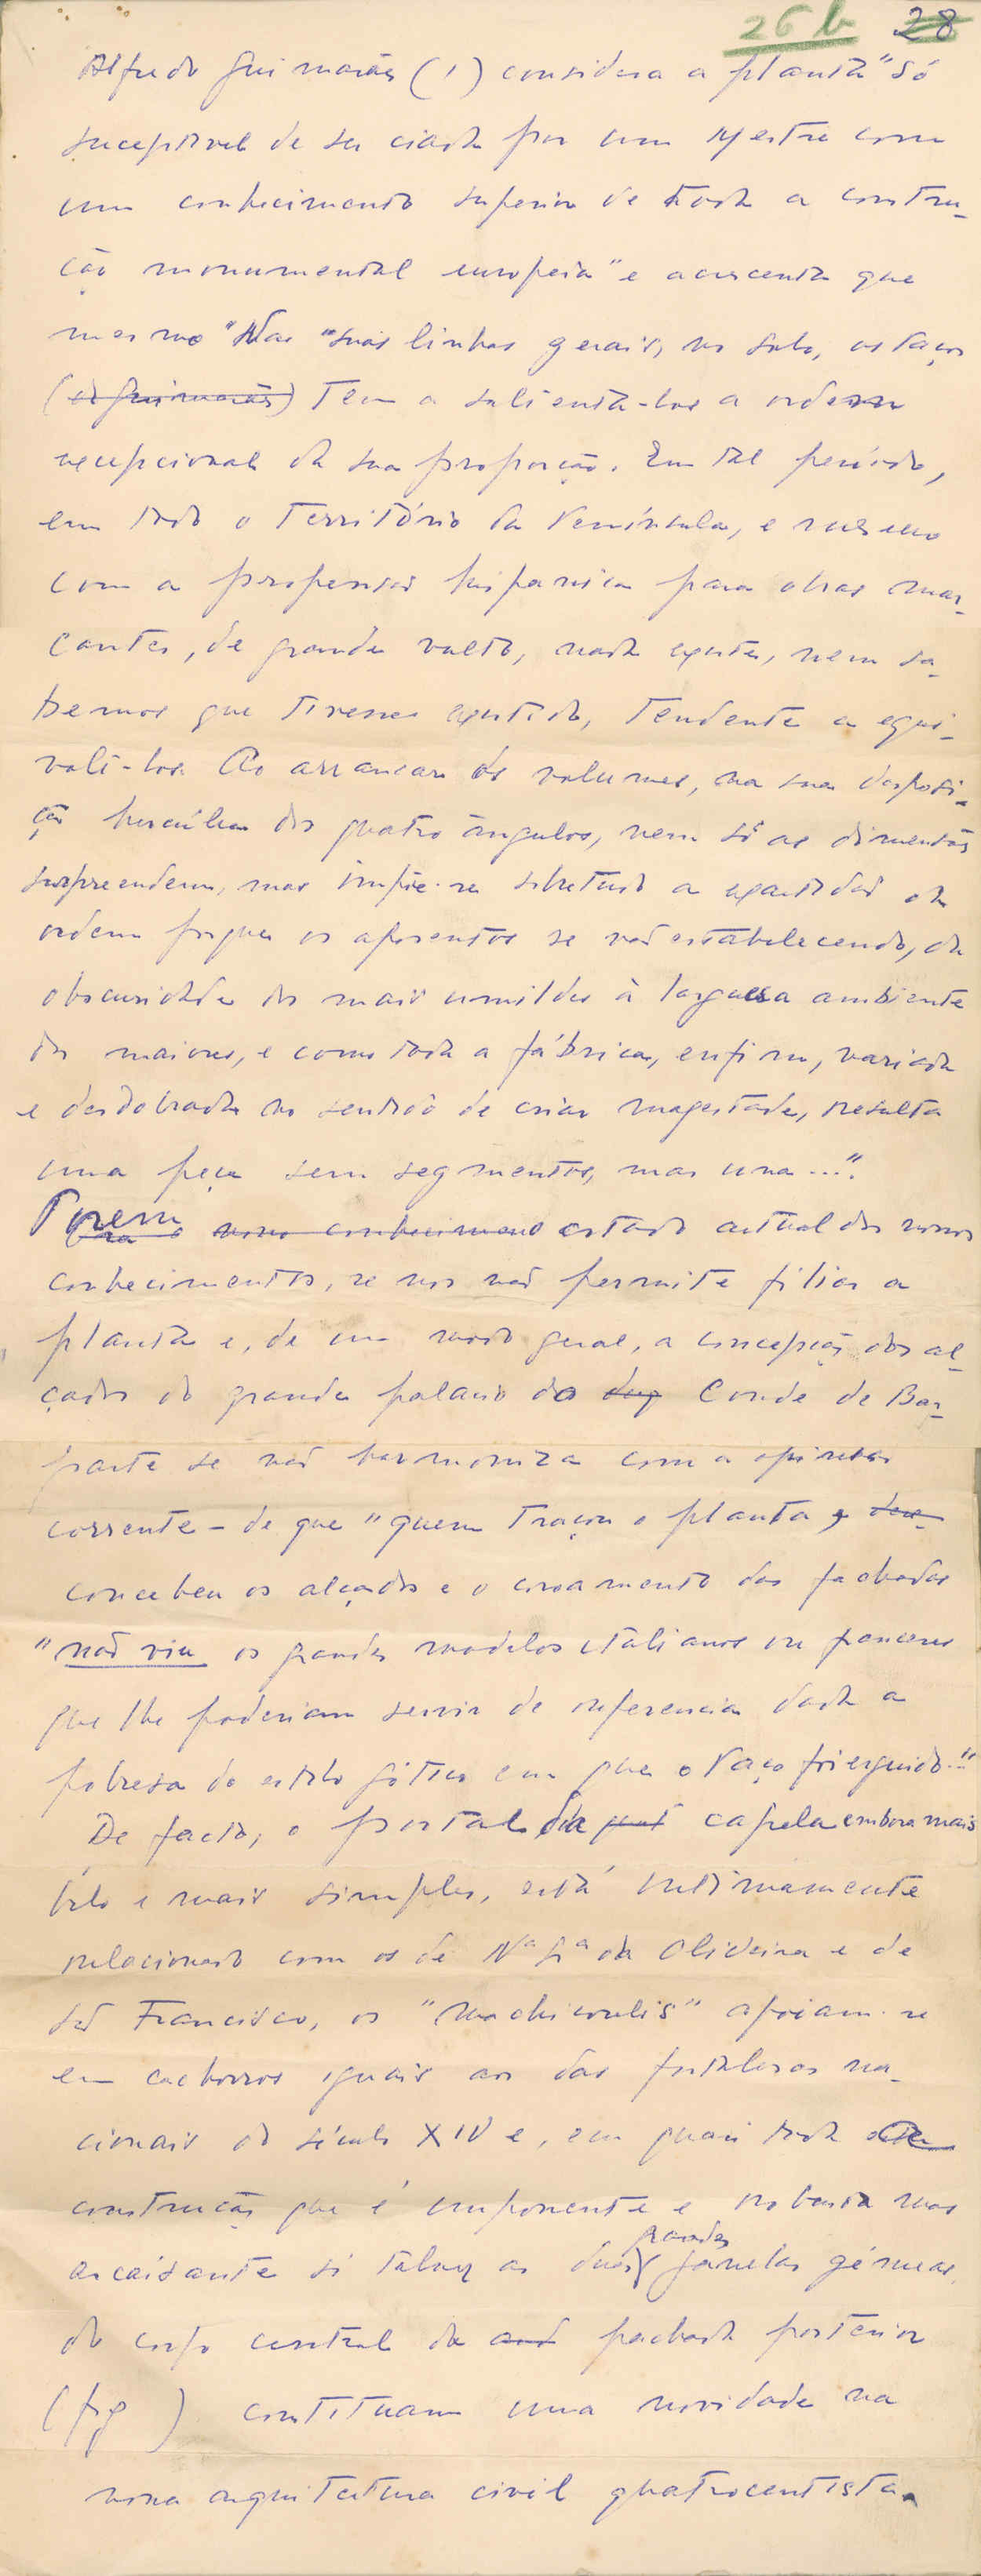 26 b 28
Alfredo Guimarães (1) considera a planta "só
suceptivel de ser criada por um Mestre com
um conhecimento superior de toda a constru-
ção monumental europeia" e acrescenta que
mesmo "Nas "suas linhas gerais, no solo, os Paços
(de Guimarães) Tem a salientá-los a ordem
excepcional da sua proporção. Em tal período,
em todo o Território da Península, e mesmo
com a propensão hispanica para obras mar-
cantes, de grande vulto, nada existe, nem sa-
bemos que tivesse existido, Tendente a equi-
valê-los. Ao arrancar os volumes, na sua disposi-
ção hercúlea dos quatro ângulos, nem só as dimensões
surpreendem, mas impõe-se sobretudo a exactidão da
ordem porque os aposentos se vão estabelecendo, da
obscuridade dos mais humildes à larguesa ambiente
dos maiores, e como toda a fábrica, enfim, variada
e desdobrada no sentido de criar magestade, resulta
uma peça sem segmentos, mas una..."
Porem o nosso conhecimento estado actual dos nossos
conhecimentos, se nos não permite filiar a
planta e, de um modo geral, a concepção dos al-
çados do grande palacio do duq Conde de Bar-
parte se não harmoniza com a opinião
corrente - de que "quem traçou a planta e
concebeu os alçados e o coroamento das fachadas
"não viu os grandes modelos italianos ou franceses
que lhe poderiam servir de referencia dada a
pobresa do estilo gótico em que o Paço foi erguido..."
De facto, o portal da capela embora mais
belo e mais simples, está intimamente
relacionado com os de Nª Sª da Oliveira e de
São Francisco, os "machicoulis" apoiam-se
em cachorros iguais aos das fortalesas na-
cionais do século XIV e, em quasi toda a
construção que é imponente e robusta mas
arcaisante só talvez as duas grandes janelas gémeas
do corpo central da fachada posterior
(fig ) constituam uma novidade na
nossa arquitectura civil quatrocentista.